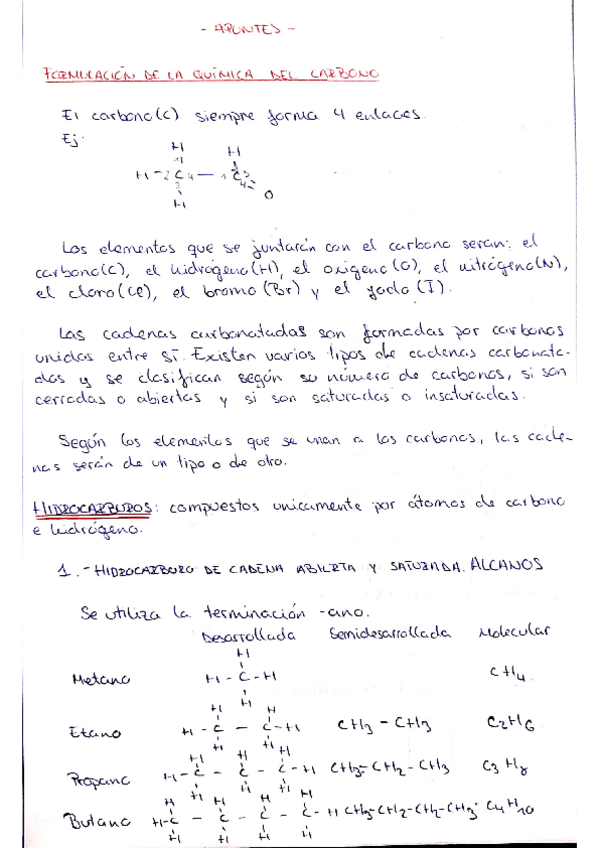 - APUNTES -
FORMULACIÓN DE LA QUÍMICA DEL CARBONO
El carbono(C) siempre forma 4 enlaces.
Ej:
H H
1
H - 2 C 4 — 1 C 3
3 4 = O
H
Los elementos que se juntarán con el carbono serán: el
carbono(C), el hidrógeno(H), el oxígeno(O), el nitrógeno(N),
el cloro(Cl), el bromo(Br) y el yodo(I).
Las cadenas carbonatadas son formadas por carbonos
unidos entre sí. Existen varios tipos de cadenas carbonata-
das y se clasifican según su número de carbonos, si son
cerradas o abiertas y si son saturadas o insaturadas.
Según los elementos que se unan a los carbonos, las cade-
nas serán de un tipo o de otro.
HIDROCARBUROS: compuestos unicamente por átomos de carbono
e hidrógeno.
1.- HIDROCARBURO DE CADENA ABIERTA Y SATURADA. ALCANOS
Se utiliza la terminación -ano.
Desarrollada Semidesarrollada Molecular
H
Metano H - C - H CH4
H
H H
Etano H - C - C - H CH3 - CH3 C2H6
H H
H H H
Propano H - C - C - C - H CH3 - CH2 - CH3 C3H8
H H H
H H H H
Butano H - C - C - C - C - H CH3-CH2-CH2-CH3 C4H10
H H H H